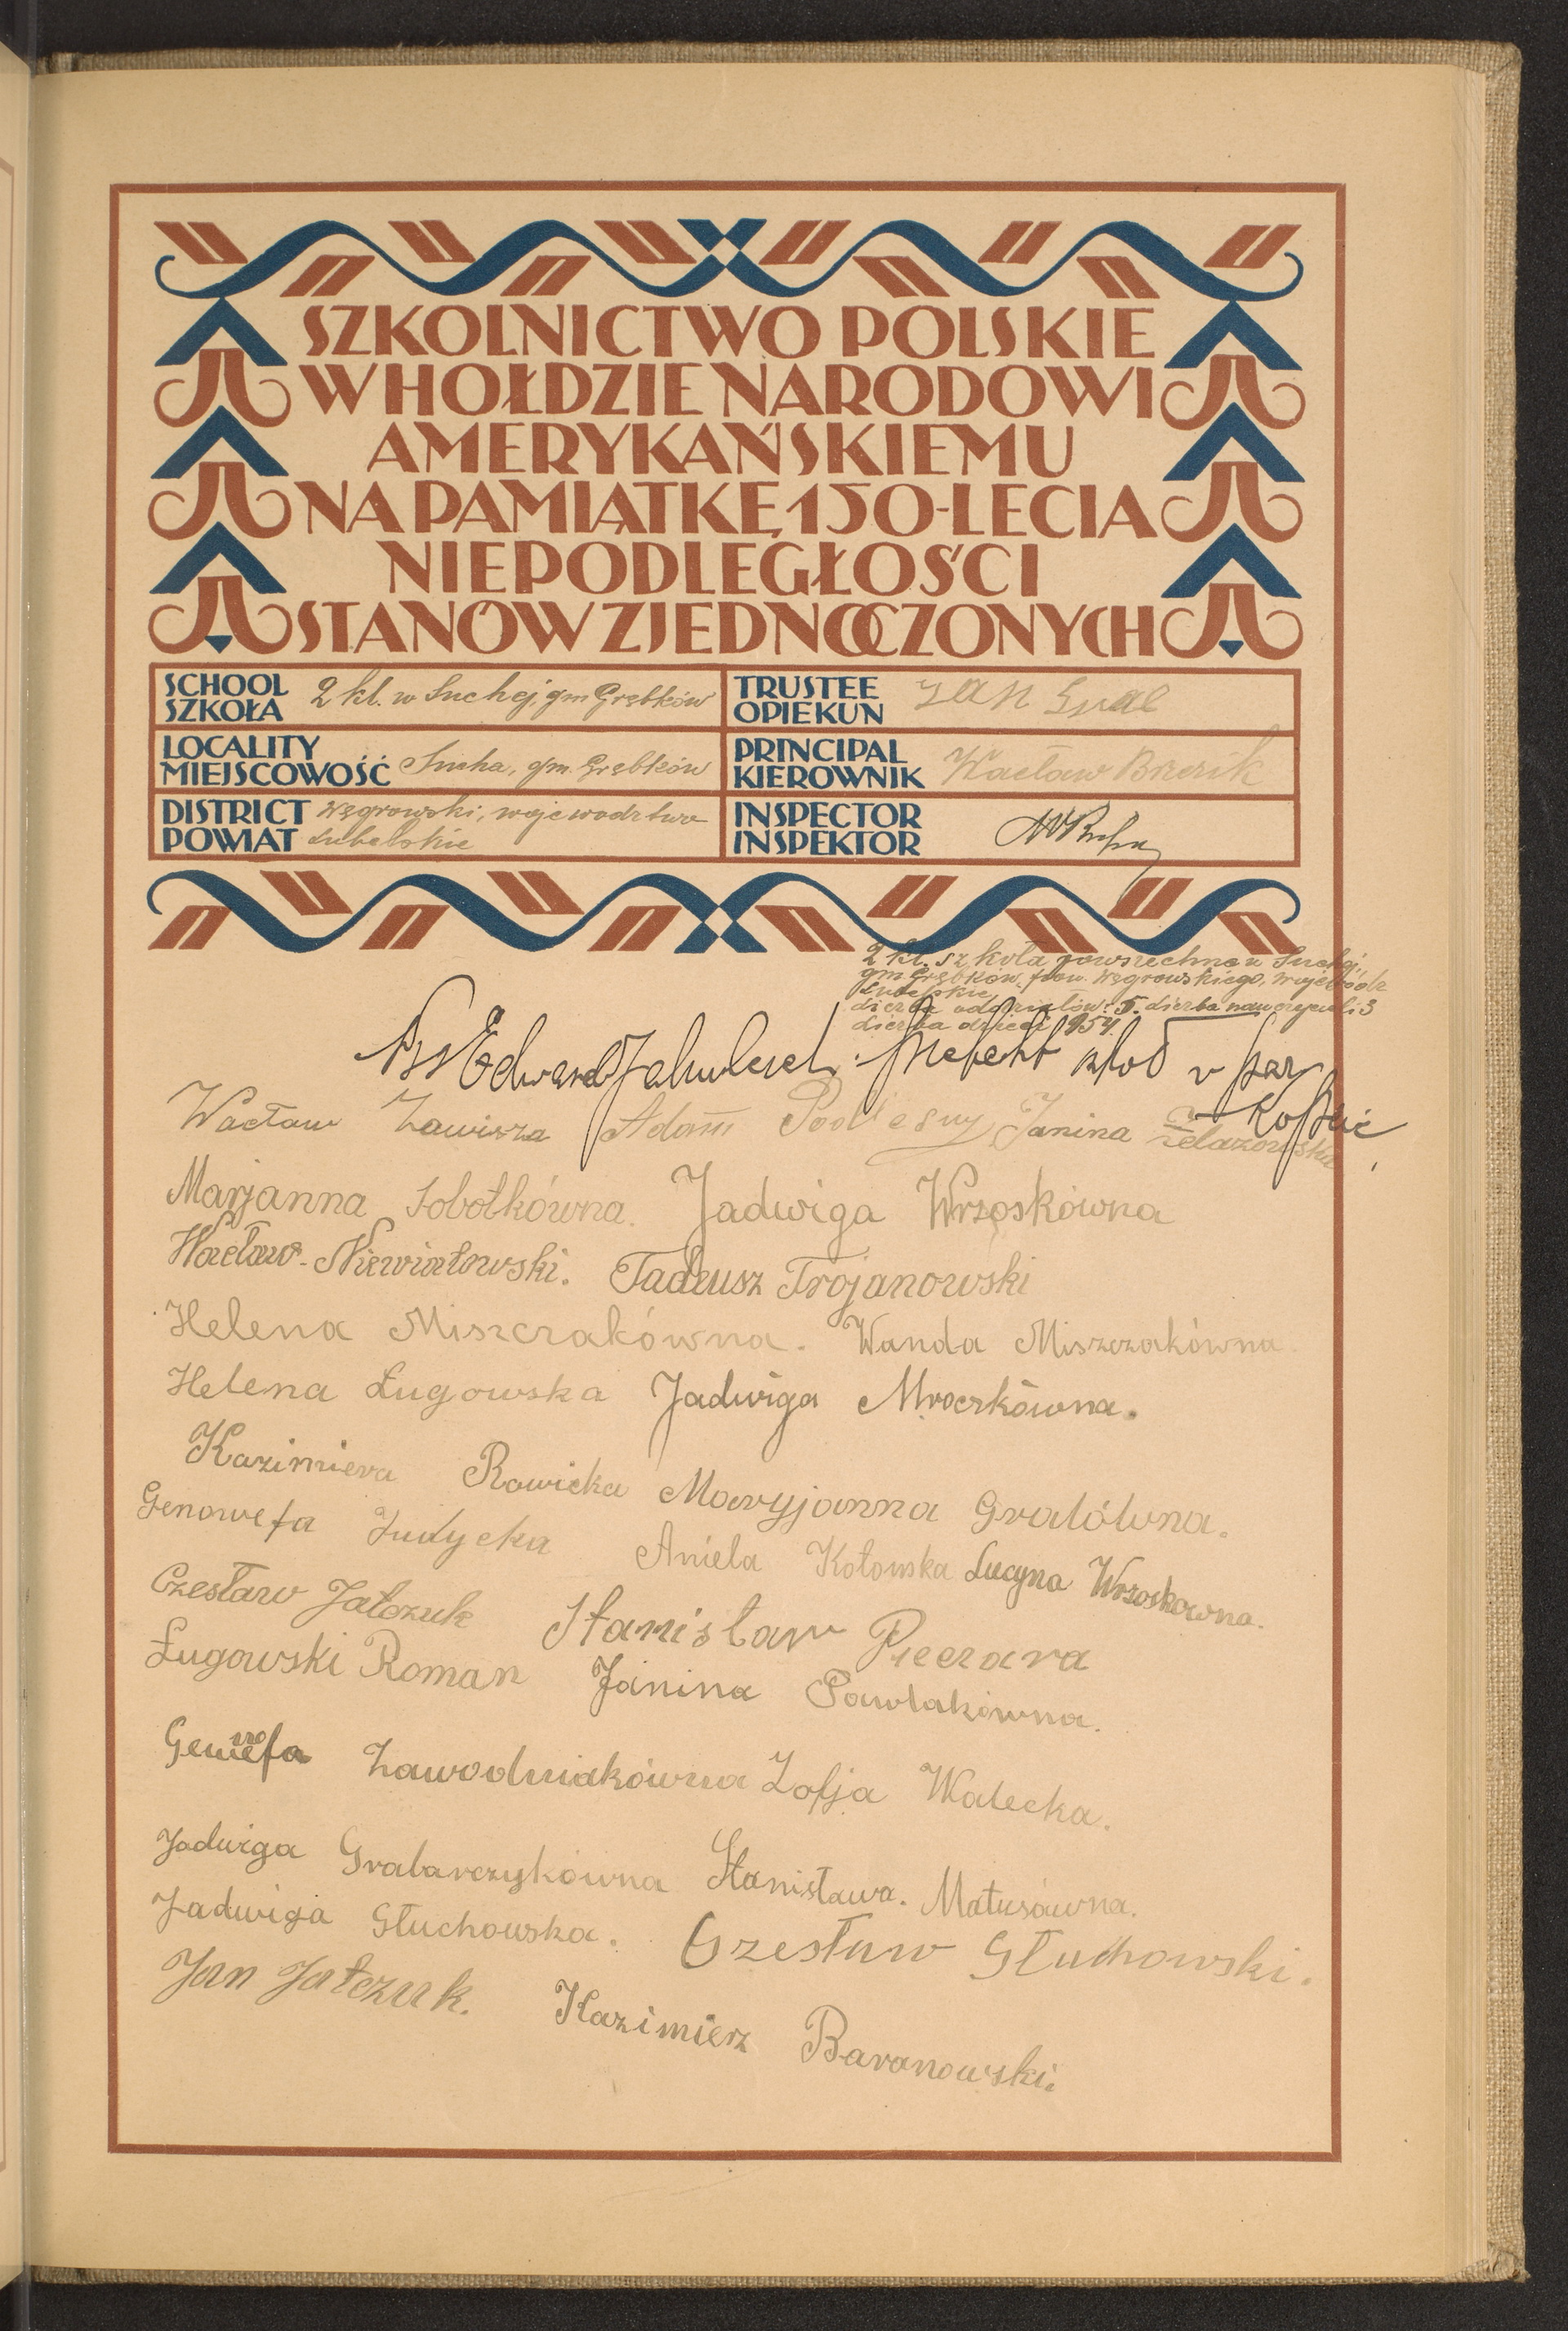 SZKOLNICTWO POLSKIE
W HOŁDZIE NARODOWI
AMERYKAŃSKIEMU
NA PAMIĄTKĘ 150-LECIA
NIEPODLEGŁOŚCI
STANÓW ZJEDNOCZONYCH
SCHOOL
SZKOŁA 2 kl. w Suchej, gm Grębków
TRUSTEE
OPIEKUN Jan
LOCALITY
MIEJSCOWOŚĆ Sucha, gm. Grębków
PRINCIPAL
KIEROWNIK Wacław Brzezik
DISTRICT Węgrowski, województwo
POWIAT Lubelskie
INSPECTOR
INSPEKTOR
2 kl. szkoła powszechna w Suchej,
gm Grębków, pow. Węgrowskiego, wojewódz
Lubelskie
liczba oddziałów: 5. liczba nauczycieli 3
liczba dzieci 154.
Ks Edward prefekt szkół w par
Kopcie
Wacław Zawisza Adam Podlesny Janina Żelazowska
Marjanna Sobotkówna. Jadwiga Wrzoskówna
Wacław Niewiatowski. Tadeusz Trojanowski
Helena Miszczakówna. Wanda Miszczakówna.
Helena Ługowska Jadwiga Mroczkówna.
Kazimiera Rowicka Maryjanna Gralówna.
Genowefa Judycka Aniela Kotowska Lucyna Wrzoskowna.
Czesław Jatczuk Stanisław Pieczara
Ługowski Roman Janina Pawlakówna.
Genowefa Zawodniakówna Zofja Walecka.
Jadwiga Grabarczykówna Stanisława. Matusówna.
Jadwiga Głuchowska. Czesław Głuchowski.
Jan Jatczuk. Kazimierz Baranowski.